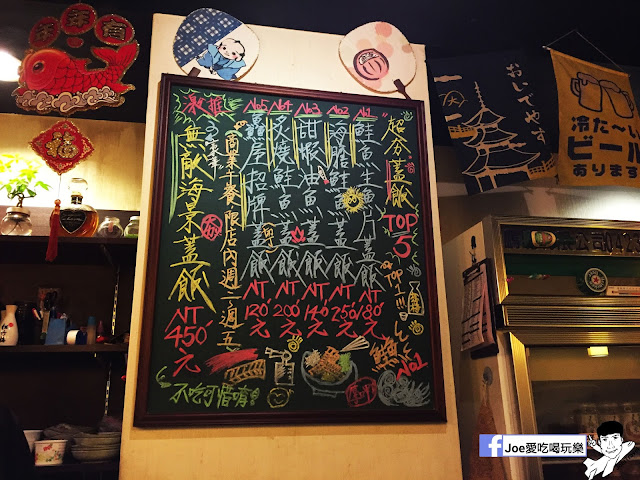 超夯蓋飯 TOP 5
No1 鮭魚生魚片蓋飯 NT 180元
No2 海膽鮭魚蓋飯 NT 250元
No3 甜蝦油魚蓋飯 NT 140元
No4 炙燒鮭魚蓋飯 NT 200元
No5 屋招牌蓋飯 NT 120元
商業午餐限店內週一~週五
激推
無敵海景蓋飯 NT 450元
夯
Top 1!!!
No1
不吃可惜唷!
おいでやす
冷た〜い
ビール
あります
Joe愛吃喝玩樂